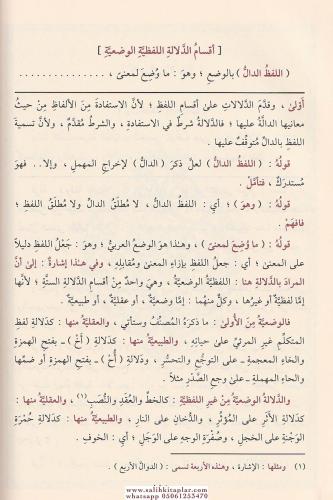 [ أقسامُ الدَّلالةِ اللفظيَّةِ الوضعيَّةِ ]
( اللفظُ الدالُّ ) بالوضعِ ؛ وهوَ : ما وُضِعَ لمعنىً ، . . . . . . . . . . . . . . .
أَوْلىٰ ، وقدَّمَ الدَّلالاتِ علىٰ أقسامِ اللفظِ ؛ لأنَّ الاستفادةَ منَ الألفاظِ مِنْ حيثُ
معانيها الدالَّةُ عليها ؛ فالدَّلالةُ شرطٌ في الاستفادةِ ، والشرطُ مُقدَّمٌ ، ولأنَّ تسميةَ
اللفظِ بالدالِّ مُتوقِّفٌ عليها .
قولُهُ : ( اللفظُ الدالُّ ) لعلَّ ذكرَ ( الدالُّ ) لإخراجِ المهملِ ، وإلا.. فهوَ
مُستدرَكٌ ، فتأمَّلْ .
قولُهُ : ( وهوَ ) ؛ أي : اللفظُ الدالُّ ، لا مُطلَقُ الدالِّ ولا مُطلَقُ اللفظِ ؛
فافهَمْ .
قولُهُ : ( ما وُضعَ لمعنىً ) ، وهـٰذا هوَ الوضعُ العربيُّ ؛ وهوَ : جَعْلُ اللفظِ دليلاً
على المعنىٰ ؛ أي : جعلُ اللفظِ بإزاءِ المعنىٰ ومُقابلِهِ ، وفي هـٰذا إشارةٌ : إلىٰ أنَّ
المرادَ بالدَّلالةِ هنا : اللفظيَّةُ الوضعيَّةُ ، وهيَ واحدٌ مِنْ أقسامِ الدَّلالةِ الستَّةِ ؛ لأنَّها
إمَّا لفظيَّةٌ أو غيرُها ، وكلٌّ منهُما : إمَّا وضعيَّةٌ ، أو عقليَّةٌ ، أو طبيعيَّةٌ .
فالوضعيَّةُ مِنَ الأُولىٰ : ما ذكرَهُ المصنِّفُ وستأتي ، والعقليَّةُ منها : كدَلالةِ لفظِ
المتكلِّمِ غيرِ المرئيِّ علىٰ حياتِهِ ، والطبيعيَّةُ منها : كدَلالةِ ( أَخْ ) - بفتحِ الهمزةِ
والخاءِ المعجمةِ - على التوجُّعِ والتحسُّرِ ، ودَلالةِ ( أُحْ ) - بفتحِ الهمزةِ أو ضمِّها
والحاءِ المهملةِ - علىٰ وجعِ الصَّدْرِ مثلاً .
والدَّلالةُ الوضعيَّةُ مِنْ غيرِ اللفظيَّةِ : كالخطِّ والعُقَدِ والنُّصُبِ(١) ، والعقليَّةُ منها :
كدَلالةِ الأثرِ على المُؤثِّرِ ، والدُّخَانِ على النارِ ، والطبيعيَّةُ منها : كدَلالةِ حُمْرَةِ
الوَجْنةِ على الخجلِ ، وصُفْرَةِ الوجهِ على الوَجَلِ ؛ أي : الخوفِ .
(١) ومثلها : الإشارة ، وهـٰذه الأربعة تسمى : ( الدوالَّ الأربع ) .
salihkitaplar.com
whatsapp 05061253470